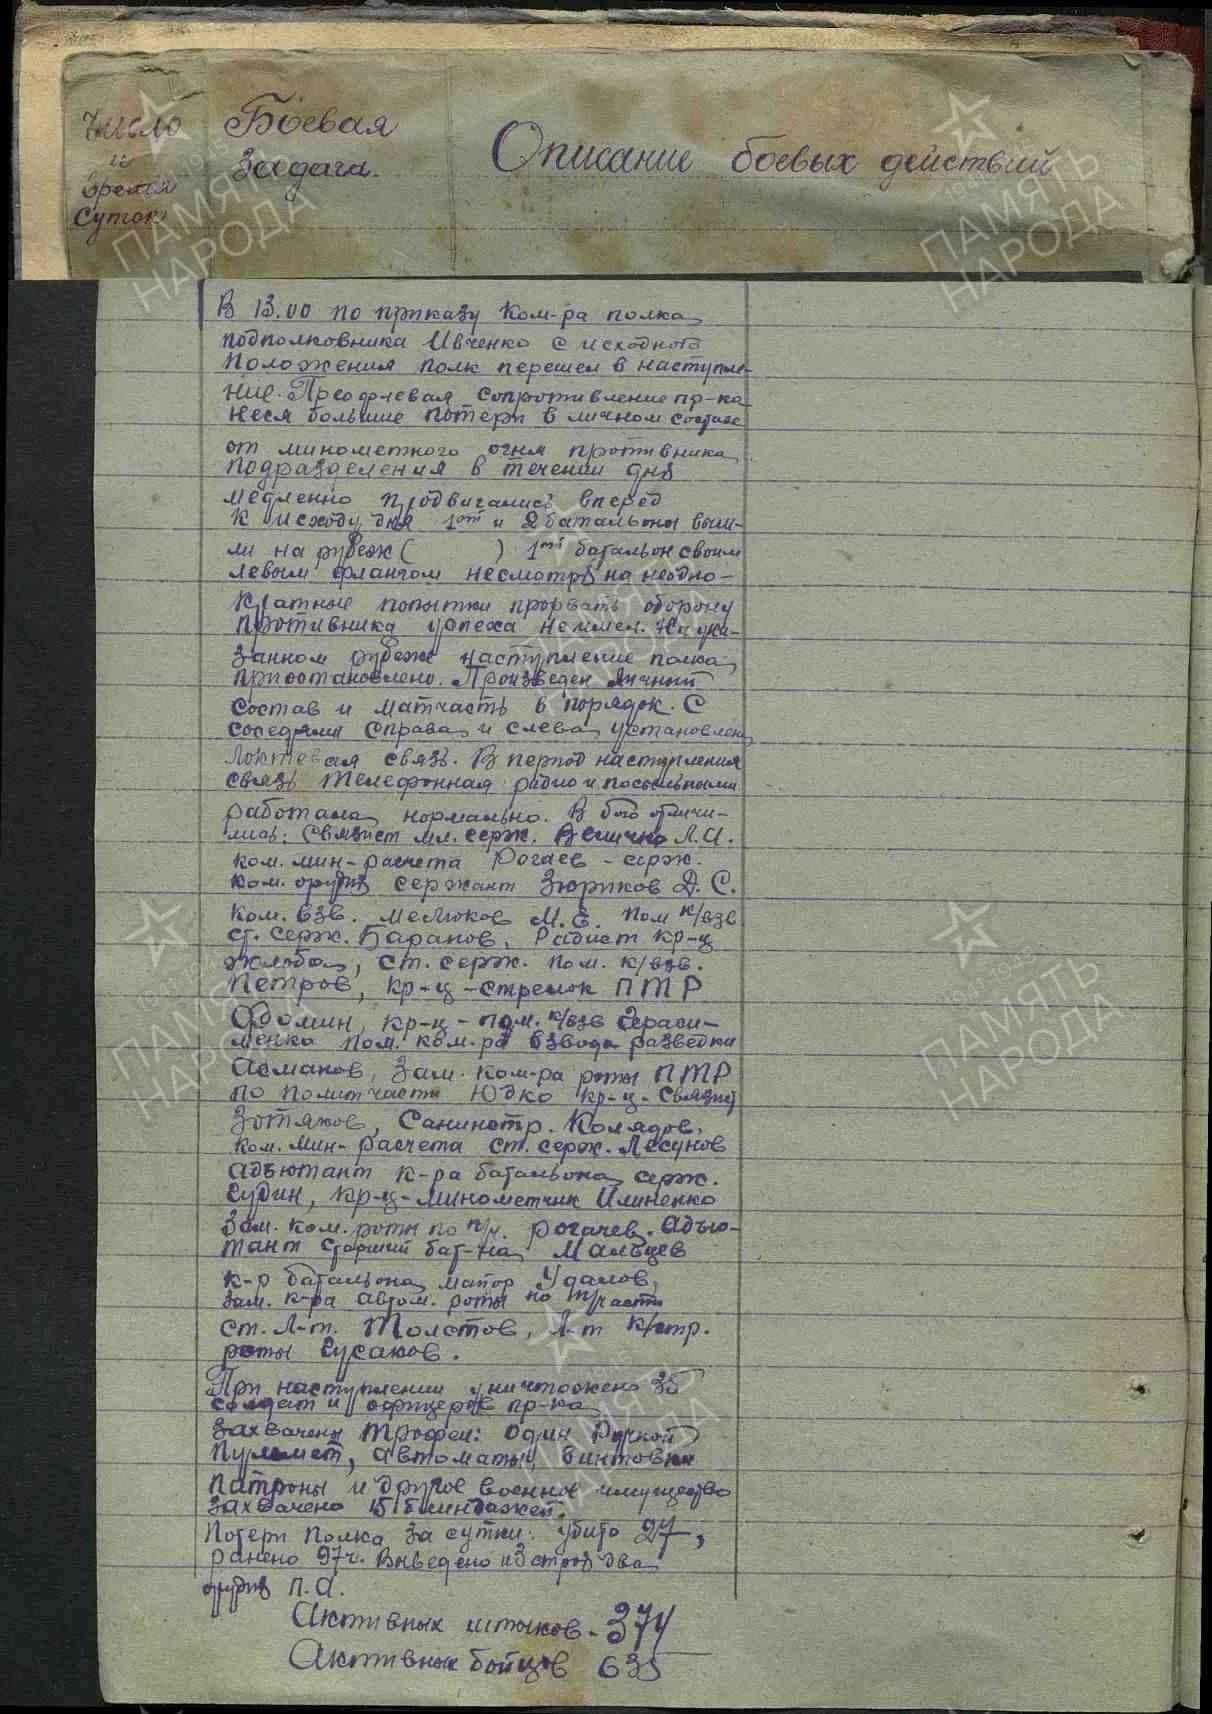 Число
и
время
суток
Боевая
задача.
Описание боевых действий
В 13.00 по приказу Ком-ра полка
подполковника Ивченко с исходного
Положения полк перешел в наступле-
ние. Преодолевая сопротивление пр-ка
неся большие потери в личном составе
от минометного огня противника
подразделения в течении дня
медленно продвигались вперед
К исходу дня 1ый и 2 батальоны выш-
ли на рубеж ( ) 1ый батальон своим
левым флангом несмотря на неодно-
кратные попытки прорвать оборону
противника успеха не имел. На ука-
занном рубеже наступление полка
приостановлено. Произведен личный
состав и матчасть в порядок. С
соседями справа и слева установлена
Локтевая связь. В период наступления
связь телефонная радио и посыльными
работала нормально. В бою отличи-
лись: Связист мл. серж. Величко Л.И.
ком. мин-расчета Рогаев - серж.
ком. орудия сержант Зюриков Д. С.
ком. взв. Меслюков М. Е. Пом к/взв
ст. серж. Баранов, Радист кр-ц
Жлоба, ст. серж. пом. к/взв.
Петров, кр-ц-стрелок ПТР
Фомин, кр-ц - пом. к/взв Гераси-
менко пом. ком-ра взвода разведки
Асманов, Зам. ком-ра роты ПТР
по политчасти Юдко кр-ц-связист
Зотяков, Санинстр. Колядов,
ком. мин-расчета ст. серж. Лесунов
Адъютант к-ра батальона серж.
Судин, кр-ц-минометчик Илиненко
Зам. ком. роты по п/ч. Рогачев. Адъю-
тант старший бат-на Мальцев
к-р батальона майор Удалов,
зам. к-ра автом. роты по п/части
ст. Л-т. Толстов, Л-т к/стр.
роты Сусаков.
При наступлении уничтожено 35
солдат и офицеров пр-ка
захвачены трофеи: один Ручной
Пулемет, автоматы, винтовки
патроны и другое военное имущество
захвачено 15 блиндажей.
Потери Полка за сутки: убито 27,
ранено 97ч. Выведено из строя два
орудия П.А.
Активных штыков - 374
Активных бойцов 635
ПАМЯТЬ
НАРОДА